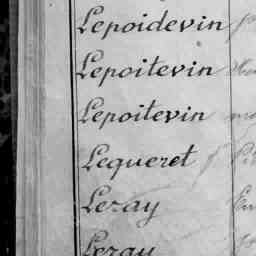 Lepoidevin
Lepoitevin
Lepoitevin
Lequeret
Leray
Leray